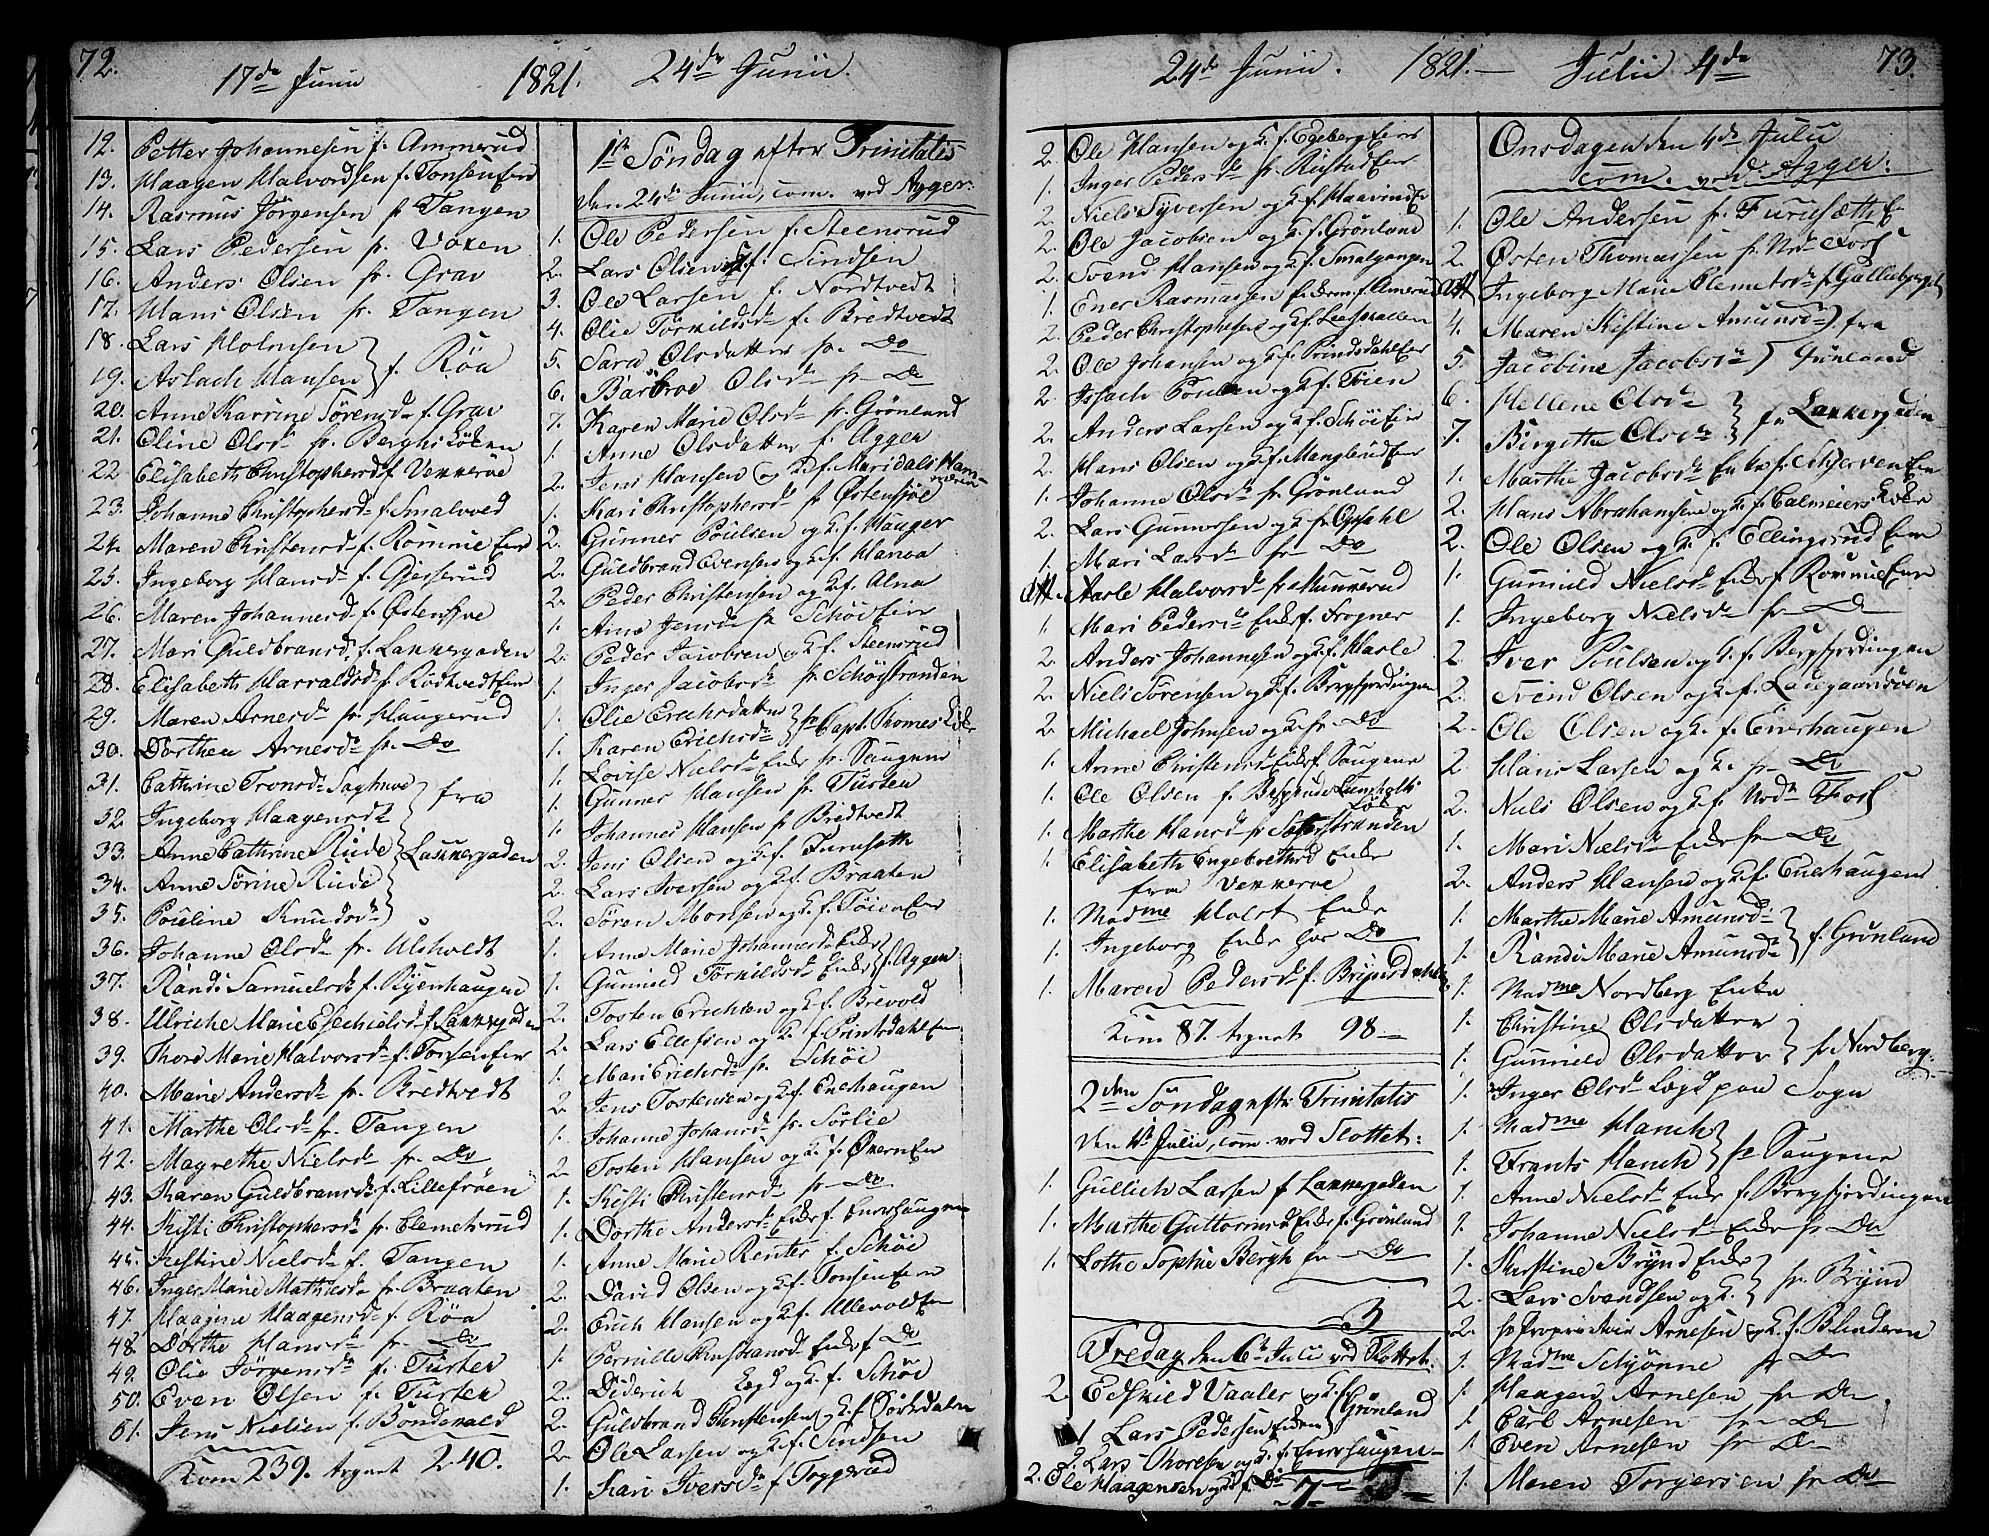 72.
17de Junii
1821.
24de Junii.
12. Petter Johannesen f. Ammerud
13. Haagen Halvordsen f. Tonsen Eie
14. Rasmus Jörgensen fr Tangen
15. Lars Pedersen fr. Voxen
16. Anders Olsen fr. Grav
17. Hans Olsen fr. Tangen
18. Lars Holmsen
19. Aslach Hansen } f. Röa
20. Anne Karrine Sörensdr f. Grav
21. Oline Olsdr fr. Berghs Löken
22 Elisabeth Christophersd f Vekkeröe
23. Johanne Christophersd f Smalvoed
24. Maren Christensd f. Rommie Eie
25. Ingeborg Hansdr f. Gjetterud
26. Maren Johannesd f. Östensjöe
27. Mari Guldbransd. f. Lakkergaden
28. Elisabeth Harraldsd f Rödtvedt Eie
29. Maren Arnesdr fr Haugerud
30. Dorthea Arnesdr fr. Do
31. Cathrine Tronsdr
32. Ingeborg Haagensdr
33. Anne Cathrine Rude
34. Anne Sörine Rude
35. Pouline Knudsdr } fra Lakkergaden
36. Johanne Olsdr fr. Ulsholdt
37. Randi Samuelsdr f. Ryenhaugen
38. Ulriche Marie Esechielsd f. Lakkergaden
39. Thore Marie Halvorsdr f. Tonsen Eie
40. Marie Andersdr fr. Bredtvedt
41. Marthe Olsdr fr. Tangen
42. Magrethe Nielsdr fr. Do
43. Karen Guldbransdr f. Lillefröen
44. Kisti Christophersdr fr. Clemetsrud
45. Kestine Nielsdr f. Tangen
46. Inger Marie Mathisdr fr Braaten
47. Haagine Haagensdr f. Röa
48. Dorthe Hansdr fr. Do
49. Olie Jörgensdr f. Turter
50. Even Olsen f. Turter
51. Jens Nielsen f. Böndevald
Kom 239. tegnet 240.
1ste Söndag efter Trinitatis
den 24de Junii, com. ved Agger:
1. Ole Pedersen f. Steensrud
2. Lars Olsen f. Sindsen
3. Ole Larsen f. Nordtvedt
4. Olie Törkildsdr f. Bredtvedt
5. Sara Olsdatter fr. Do
6. Barbroe Olsdr fr Do
7. Karen Marie Olsdr fr. Grönland
1. Anne Olsdatter f. Agger
2. Jens Hansen og K. f. Maridals Hammeren
1. Kari Christophersdr fr Östensjöe
2. Gunner Poulsen og K. f. Hauger
2. Guldbrand Evensen og K. f. Hanva
2. Peder Christensen og K f. Alna
1. Anne Jensdr fr Schöi Eie
2. Peder Jacobsen og K f. Steensrud
1. Inger Jacobsdr fr Schöistranden
1. Olie Erichsdatter
1. Karen Erichsdr } fr Capt. Thomes Löke
1. Lovise Nielsdr Enke fr Saugene
1. Gunner Hansen fr Turter
1. Johannes Hansen fr Bredtvedt
2. Jens Olsen og K. f. Furuseth
2. Lars Iversen og K f. Braaten
2. Sören Monsen og K f. Töien Eie
1. Anne Marie Johannesdr Enke
1. Gunnild Törkildsdr Enke } f. Aggen
2. Tosten Erichsen og K f. Brevold
2. Lars Ellefsen og K. f. Printsdahl Eie
1. Mari Erichsdr fr. Schöie
2. Jens Tostensen og K f. Enehaugen
1. Johanne Johansdr fr. Sörlie
2 Tosten Hansen og K. f. Ökern Eie
1. Kisti Christensdr fr Do
1. Dorthe Andersdr Enke f. Enerhaugen
1. Anne Marie Reuter f. Schöie
2. David Olsen og K f. Tonsen Eie
2. Erich Hansen og K f. Ullevoldt Eie
1. Pernille Christiansd Enke f Do
2. Diderich Lægd og K. f. Schöe
2. Guldbrand Christensen og K f Sörkdalen
2. Ole Larsen og K. f. Sindsen
1. Kari Iversdr f. Toggerud
24de Junii. 1821. Julii 4de 73.
2. Ole Hansen og K. f. Egeberg Eie
1. Inger Pedersdr fr. Rustad Eie
2. Niels Syversen og K f Haavind Eie
2. Ole Jacobsen og K f. Grönland
2. Svend Hansen og K f. Smalgangen
1. Ener Rasmussen Enkem. f. Amerud
2. Peder Christophersen og K f. Leerskallen
2. Ole Johansen og K f. Prindsdahl Eie
2. Isach Poulsen og K f. Töien
2. Anders Larsen og K f. Schöi Eie
2. Hans Olsen og K f. Manglerud Eie
1. Johanne Olsdr fr. Grönland
2. Lars Gunnersen og K fr Opsahl
1. Mari Larsdr fr Do
Att. Aasle Halvorsdr fr Munkerud
1. Mari Pedersdr Enke f. Frogner
2. Anders Johannesen og K f. Hasle
2. Niels Sörensen og K f. Bergfjerdingen
2 Michael Johnsen og K fr. Do
1. Anne Christensd Enke f Saugene
1. Ole Olsen f. Löke
1. Marthe Hansd fr Sætterstranden
1. Elisabeth Engebrethsd Enke
fra Vekkeröe
1. Madme Holst Enke
1. Ingeborg Enke hos Do
1. Maren Pedersdr f.
Kom 87. tegnet 98
2den Söndag eftr Trinitatis
den 1te Julii, com. ved Slottet:
1. Gullich Larsen f Lakkergaden
1. Marthe Guttormsd Enke f. Grönland
1. Lothe Sophie Bergh fr Do
3
Fredag den 6te Juli ved Slottet.
2. Edskield Vaaler og K f. Grönland
1 Lars Pedersen Enkem
2. Lars Thoresen og K. f. Enerhaugen
2. Ole Haagensen og K f. Do
7
Onsdagen den 4de Julii
com. ved Agger:
1. Ole Andersen fr. Furuseth E
2. Östen Thomassen fr Nrdr Foss
Att Ingeborg Marie Clemetsdr f Galleberget
4. Maren Kistine Amundsdr
5. Jacobine Jacobsdr } fra Grönland
6. Hellene Olsdr
7. Birgithe Olsdr } fr. Lakkergaden
1. Marthe Jacobsdr Enke f. Skjerven Eie
2. Hans Abrahamsen og K. f. Calmeiers Löke
2. Ole Olsen og K. f. Ellingsrud Eie
1. Gunnild Nielsdr Enke f Rommie Eie
1. Ingeborg Nielsdr fr Do
2 Iver Poulsen og K. f. Bergfjerdingen
2. Svend Olsen og K. f. Ladegaardsöen
2. Ole Olsen og K. f. Enerhaugen
2. Hans Larsen og K. fr Do
2. Niels Olsen og K f. Nrdr Foss
1. Mari Nielsdr Enke fr Do
2. Anders Hansen og K f. Enehaugen
1. Marthe Marie Amundsdr
1. Randi Marie Amundsdr } f. Grönland
1. Madme Nordberg Enke
1. Christine Olsdatter
1. Gunnild Olsdatter } fr. Nordberg
1. Inger Olsdr Lægd paa Sogn
1. Madme Hanch
1. Frants Hanch } fr Saugene
1. Anne Nielsdr Enke f. Bergfjerdingen
1. Johanne Nielsdr Enke fr Do
1. Kirstine Brynd Enke
2. Lars Svendsen og K. } fr. Brynd
2. Hr Proprietair Arnesen og K f. Blinderen
1. Madme Schjönne fr Do
1. Haagen Arnesen fr Do
1. Carl Arnesen fr Do
1. Even Arnesen fr Do
1. Maren Torgersen fr Do